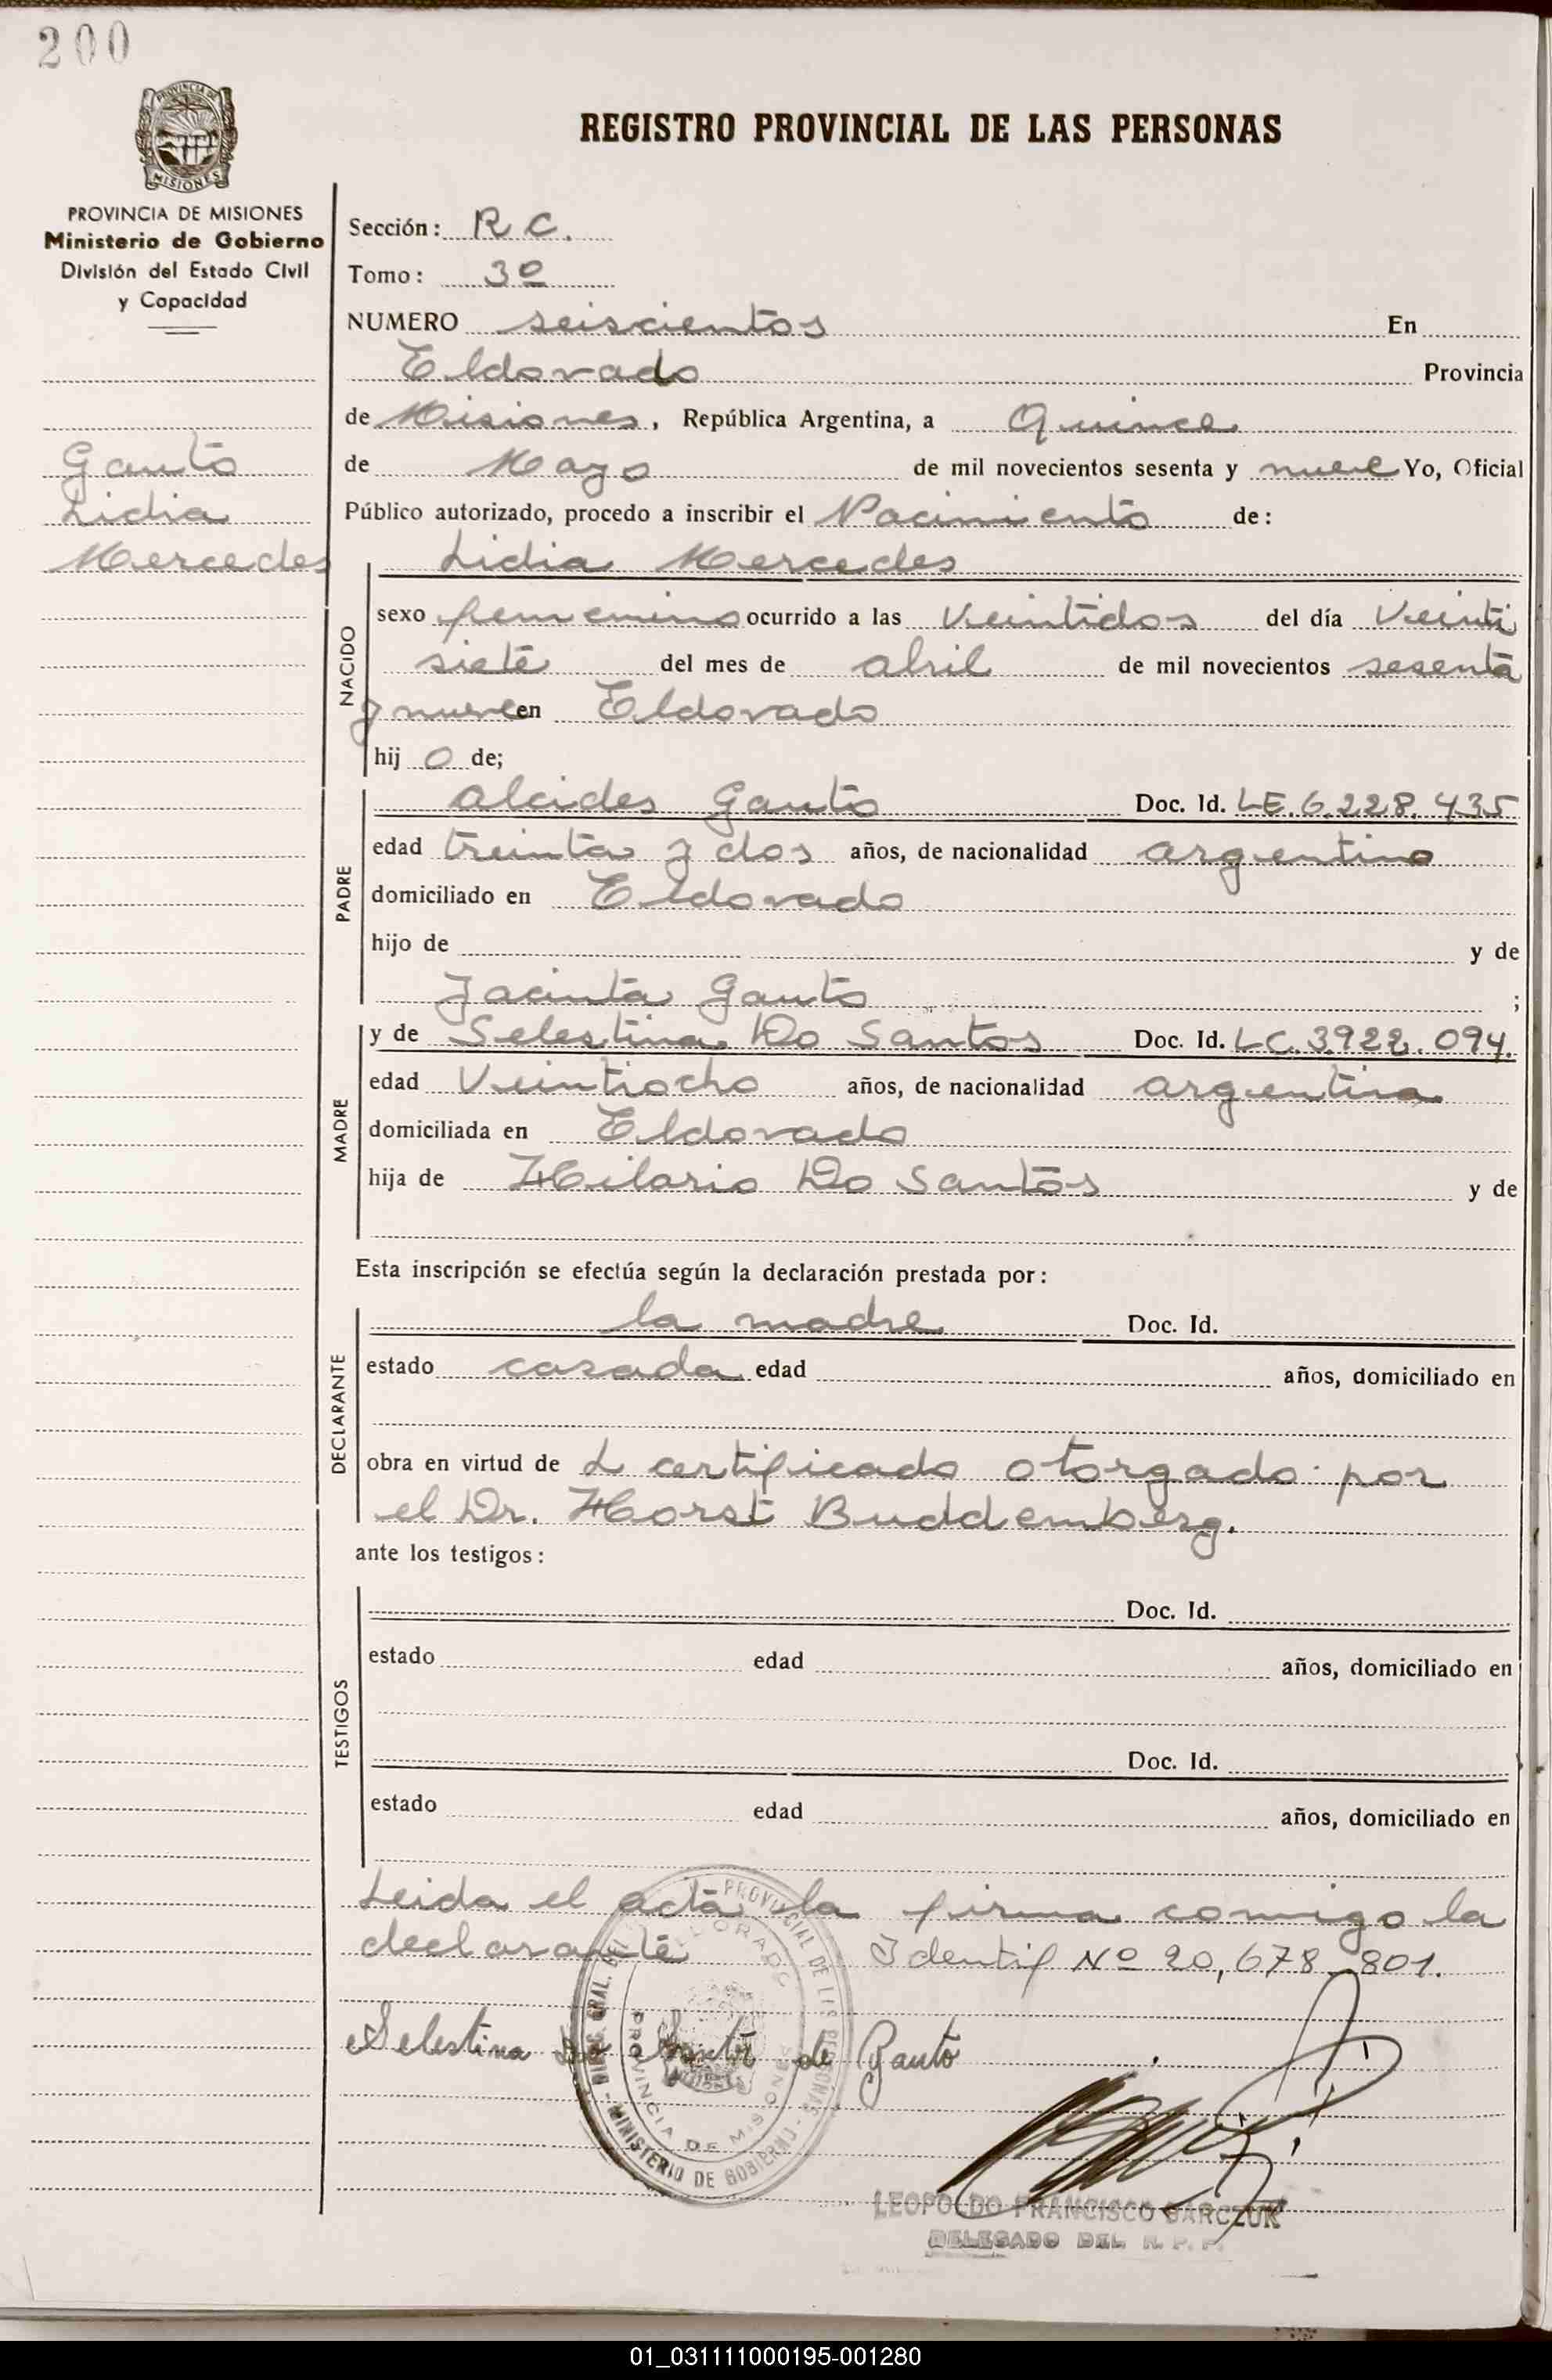 200
PROVINCIA DE
MISIONES
REGISTRO PROVINCIAL DE LAS PERSONAS
PROVINCIA DE MISIONES
Ministerio de Gobierno
División del Estado Civil
y Capacidad
Gauto
Lidia
Mercedes
Sección: R C.
Tomo: 3º
NUMERO seiscientos En
Eldorado Provincia
de Misiones, República Argentina, a Quince
de Mayo de mil novecientos sesenta y nueve Yo, Oficial
Público autorizado, procedo a inscribir el Nacimiento de:
NACIDO
Lidia Mercedes
sexo femenino ocurrido a las Veintidos del día Veinti
siete del mes de abril de mil novecientos sesenta
y nueve en Eldorado
hij o de;
PADRE
Alcides Gauto Doc. Id. LE. 6.228.435
edad treinta y dos años, de nacionalidad argentino
domiciliado en Eldorado
hijo de y de
Jacinta Gauto ;
MADRE
y de Selestina Do Santos Doc. Id. LC. 3922.094.
edad Veintiocho años, de nacionalidad argentina
domiciliada en Eldorado
hija de Hilario Do Santos y de
Esta inscripción se efectúa según la declaración prestada por:
DECLARANTE
la madre Doc. Id.
estado casada edad años, domiciliado en
obra en virtud de L certificado otorgado por
el Dr. Horst Buddemberg.
ante los testigos:
TESTIGOS
Doc. Id.
estado edad años, domiciliado en
Doc. Id.
estado edad años, domiciliado en
Leida el acta la firma comigo la
declarante Identif Nº 20,678.801.
Selestina Do Santo de Gauto
PROVINCIAL DE LAS PERSONAS - MINISTERIO DE GOBIERNO - DIREC. GRAL. DEL
ELDORADO
PROVINCIA DE MISIONES
LEOPOLDO FRANCISCO
DELEGADO DEL R. P. P.
01_031111000195-001280